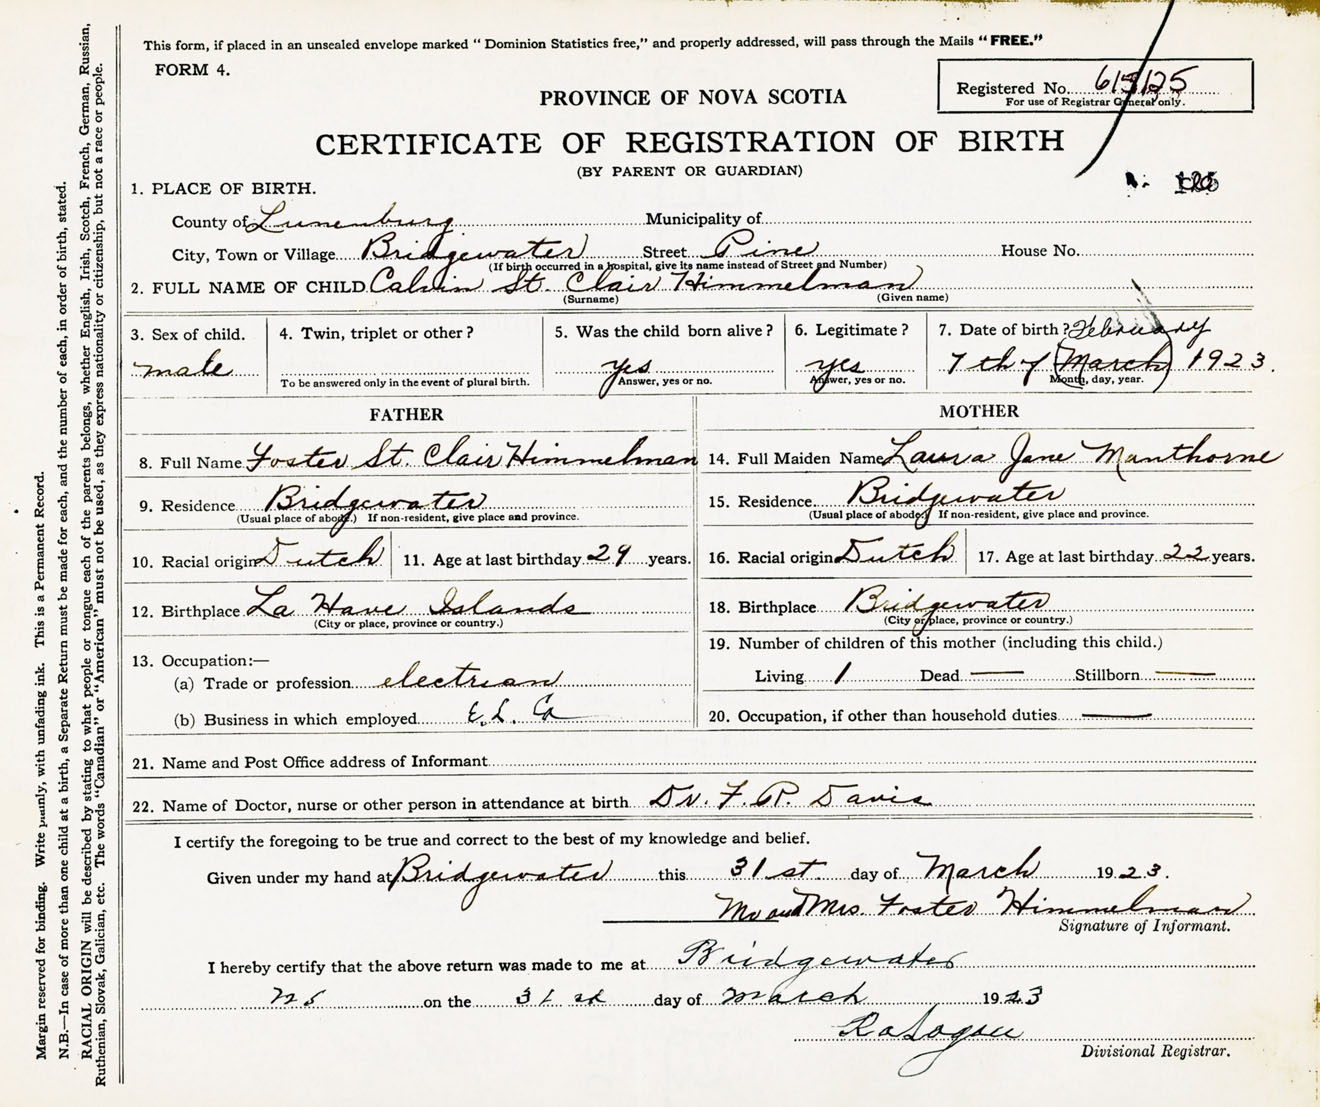 This form, if placed in an unsealed envelope marked "Dominion Statistics free," and properly addressed, will pass through the Mails "FREE."
FORM 4.
Registered No. 615125
For use of Registrar General only.
PROVINCE OF NOVA SCOTIA
CERTIFICATE OF REGISTRATION OF BIRTH
(BY PARENT OR GUARDIAN)
1. PLACE OF BIRTH.
County of Lunenburg Municipality of
City, Town or Village Bridgewater Street Pine House No.
(If birth occurred in a hospital, give its name instead of Street and Number)
2. FULL NAME OF CHILD Calvin St. Clair Himmelman
(Surname) (Given name)
3. Sex of child. 4. Twin, triplet or other? 5. Was the child born alive? 6. Legitimate? 7. Date of birth? February
male yes yes 7th of March 1923.
To be answered only in the event of plural birth. Answer, yes or no. Answer, yes or no. Month, day, year.
FATHER
8. Full Name Foster St. Clair Himmelman
9. Residence Bridgewater
(Usual place of abode.) If non-resident, give place and province.
10. Racial origin Dutch 11. Age at last birthday 29 years.
12. Birthplace La Have Islands
(City or place, province or country.)
13. Occupation:—
(a) Trade or profession electrian
(b) Business in which employed E. L. Co
MOTHER
14. Full Maiden Name Laura Jane Manthorne
15. Residence Bridgewater
(Usual place of abode) If non-resident, give place and province.
16. Racial origin Dutch 17. Age at last birthday 22 years.
18. Birthplace Bridgewater
(City or place, province or country.)
19. Number of children of this mother (including this child.)
Living 1 Dead — Stillborn —
20. Occupation, if other than household duties —
21. Name and Post Office address of Informant
22. Name of Doctor, nurse or other person in attendance at birth Dr. F. R. Davis
I certify the foregoing to be true and correct to the best of my knowledge and belief.
Given under my hand at Bridgewater this 31st. day of March 1923.
Mr and Mrs. Foster Himmelman
Signature of Informant.
I hereby certify that the above return was made to me at Bridgewater
NS on the 31st day of March 1923
Divisional Registrar.
Margin reserved for binding. Write plainly, with unfading ink. This is a Permanent Record.
N.B.—In case of more than one child at a birth, a Separate Return must be made for each, and the number of each, in order of birth, stated.
RACIAL ORIGIN will be described by stating to what people or tongue each of the parents belongs, whether English, Irish, Scotch, French, German, Russian,
Ruthenian, Slovak, Galician, etc. The words "Canadian" or "American" must not be used, as they express nationality or citizenship, but not a race or people.